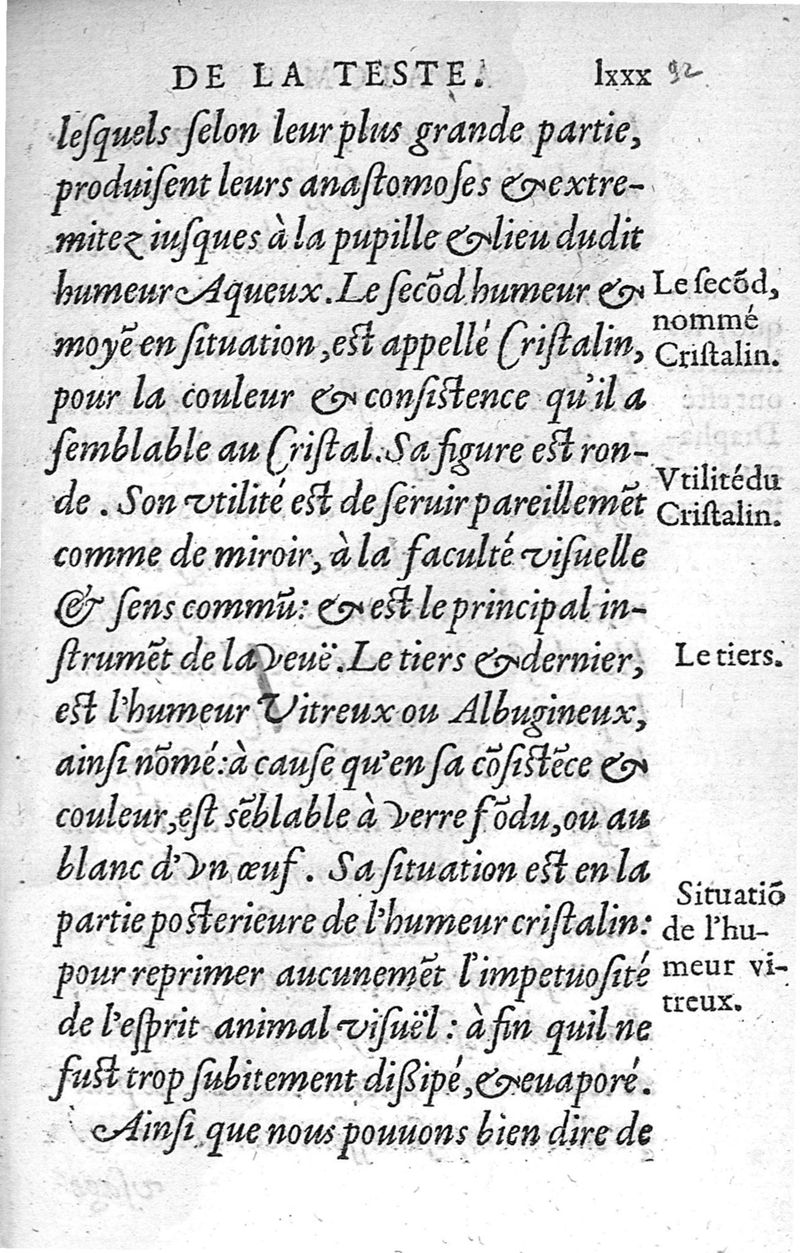 DE LA TESTE. lxxx 92
leſquels ſelon leur plus grande partie,
produiſent leurs anaſtomoſes & extre-
mitez iuſques à la pupille & lieu dudit
humeur Aqueux. Le ſecōd humeur &
Le ſecōd,
nommé
moyē en ſituation, eſt appellé Criſtalin,
Criſtalin.
pour la couleur & conſiſtence qu'il a
ſemblable au Criſtal. Sa figure eſt ron-
Vtilité du
de. Son vtilité eſt de ſeruir pareillemēt
Criſtalin.
comme de miroir, à la faculté viſuelle
& ſens commū: & eſt le principal in-
ſtrumēt de la veuë. Le tiers & dernier,
Le tiers.
eſt l'humeur Vitreux ou Albugineux,
ainſi nōmé: à cauſe qu'en ſa cōſiſtēce &
couleur, eſt sēblable à verre fōdu, ou au
blanc d'vn œuf. Sa ſituation eſt en la
Situatiō
partie poſterieure de l'humeur criſtalin:
de l'hu-
pour reprimer aucunemēt l'impetuoſité
meur vi-
treux.
de l'eſprit animal viſuël: à fin quil ne
fuſt trop ſubitement diſſipé, & euaporé.
Ainſi que nous pouuons bien dire de